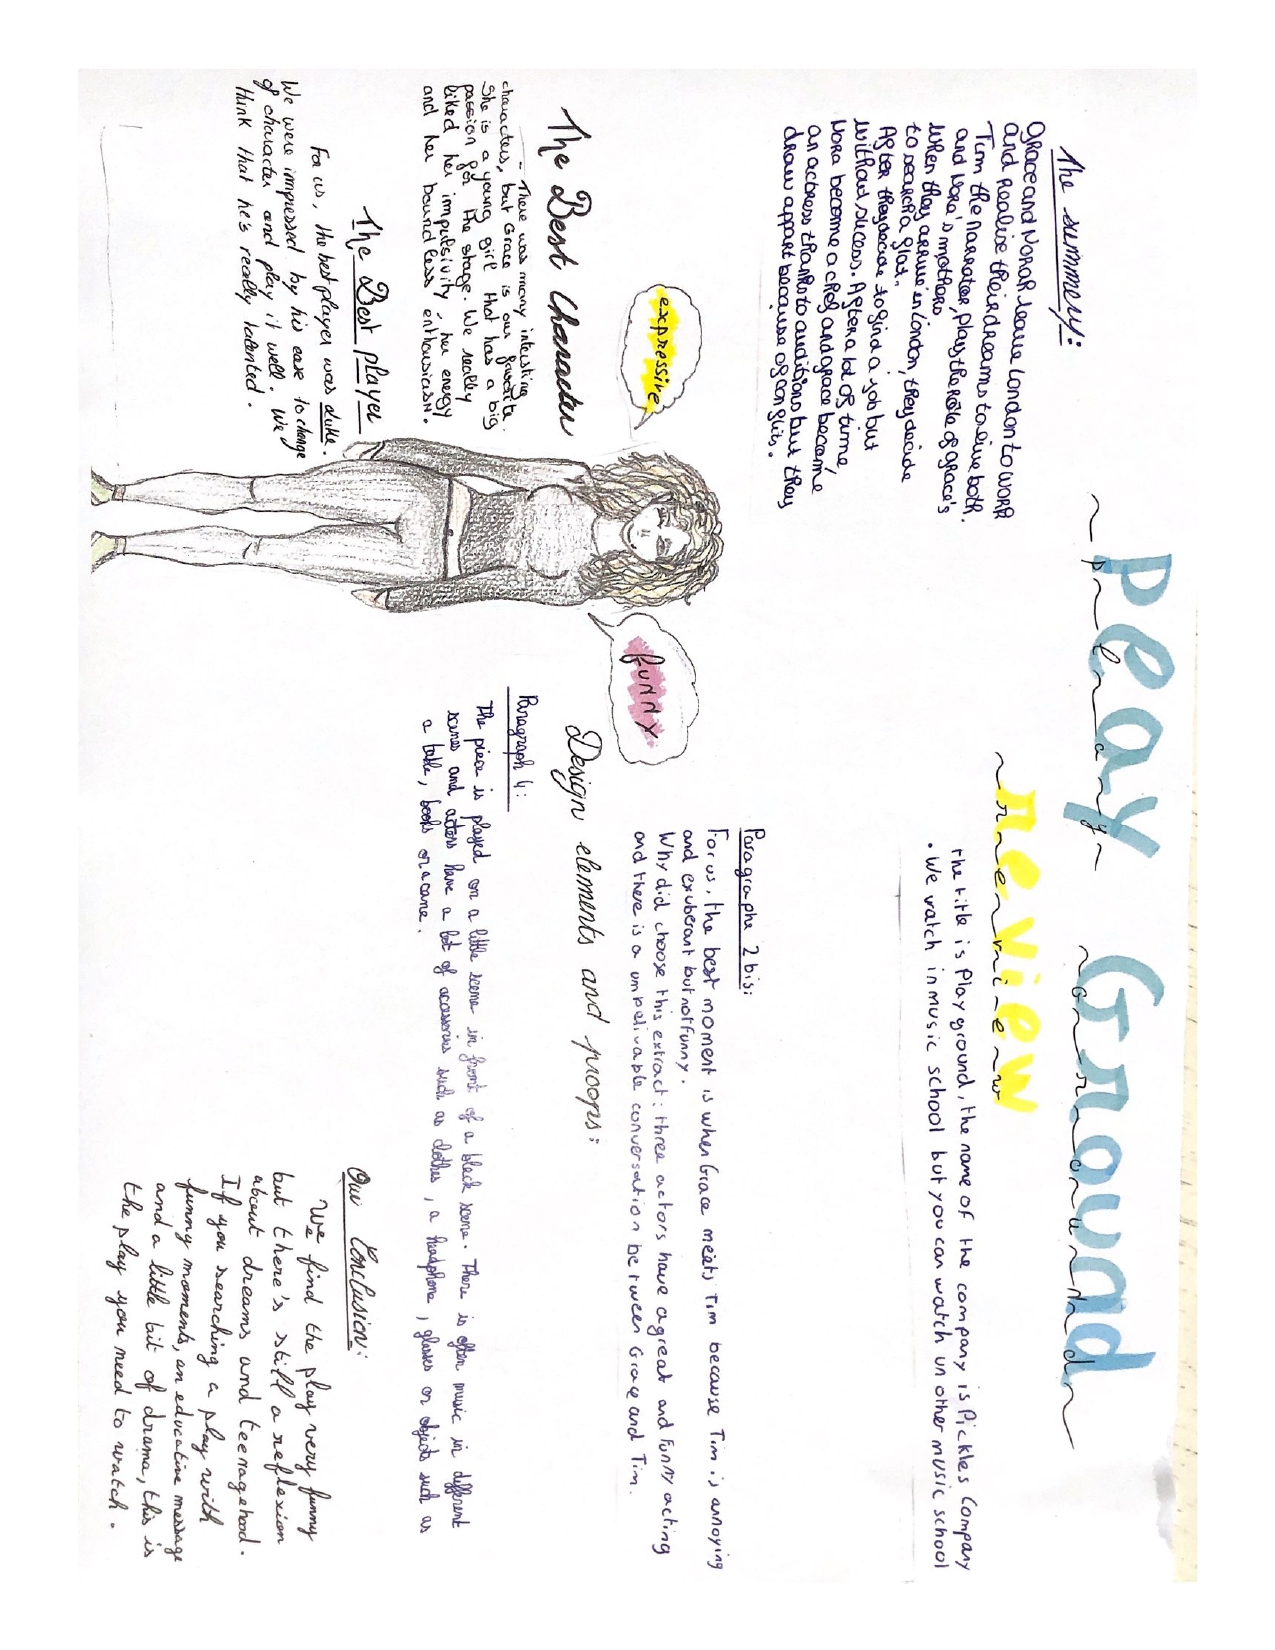 Peay Ground
play Ground
review
review
The summery:
Grace and Norah leave London to work
and realise their dreams to live both.
Tim the narrator, plays the rôle of grace's
and Nora's mothers.
When they arrive in London, they decide
to search a flat.
After they decide to find a job but
without sucess. After a lot of time,
Nora become a chef and grace become
an actress thanks to auditions but they
draw appart because of conflits.
the title is Play ground, the name of the company is Pickles Company
. We vatch in music school but you can watch un other music school
Paragraphe 2 bis:
For us, the best moment is when Grace meets Tim because Tim is annoying
and exuberant but not funny.
Why did choose this extract: three actors have a great and funny acting
and there is a umbelivable conversation between Grace and Tim.
expressive
funny
The Best Character
- There was many intersting
characters, but Grace is our favorite.
She is a young girl that has a big
passion for the stage. We really
liked her impulsivity, her energy
and her boundless enthousiasm.
The Best player
For us, the best player was Luke.
We were impressed by his ease to change
of character and play it well. We
think that he's really talented.
Design elements and proops:
Paragraph 4:
The piece is played on a little scene in front of a black scene. There is often music in different
scenes and actors have a lot of acassories such as clothes, a headphone, glasses or objects such as
a table, books or a cane.
Our Conclusion:
We find the play very funny
but there's still a reflexion
about dreams and teenagehood.
If you searching a play with
funny moments, an educative message
and a little bit of drama, this is
the play you need to watch.